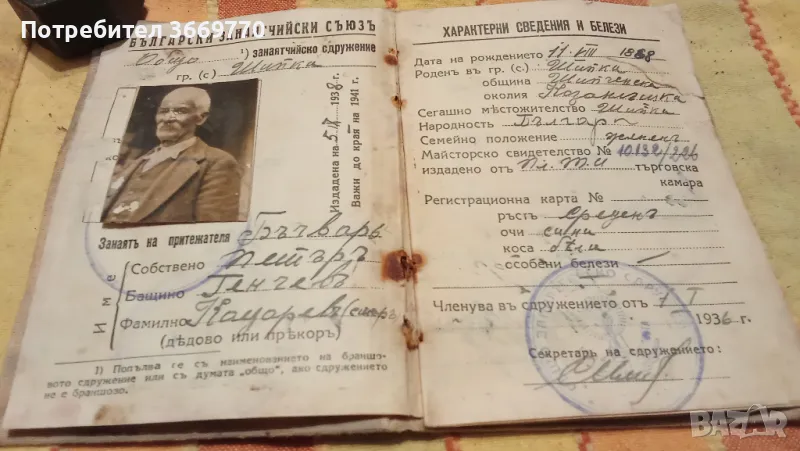 Потребител 3669770
БЪЛГАРСКИ ЗАНАЯТЧИЙСКИ СЪЮЗЪ
Общо 1) занаятчийско сдружение
гр. (с) Шипка
Издадена на 5.IX 1938 г.
Важи до край на 1941 г.
Занаятъ на притежателя Бъчварь
Име
Собствено Петъръ
Бащино Генчевъ
Фамилно
(дѣдово или прѣкоръ)
1) Попълва се съ наименованието на браншовото сдружение или съ думата „общо", ако сдружението не е браншово.
ХАРАКТЕРНИ СВЕДЕНИЯ И БЕЛЕЗИ
Дата на рождението 11.VIII 1868
Роденъ въ гр. (с.) Шипка
община Шипченска
околия Казанлъшка
Сегашно мѣстожителство Шипка
Народность Българ
Семейно положение жененъ
Майсторско свидетелство № 10132/226
издадено отъ Пл. Т.И търговска
камара
Регистрационна карта №
ръстъ среденъ
очи сини
коса бѣли
особени белези
Членува въ сдружението отъ 1 I
1936 г.
Секретарь на сдружението:
BAZAR